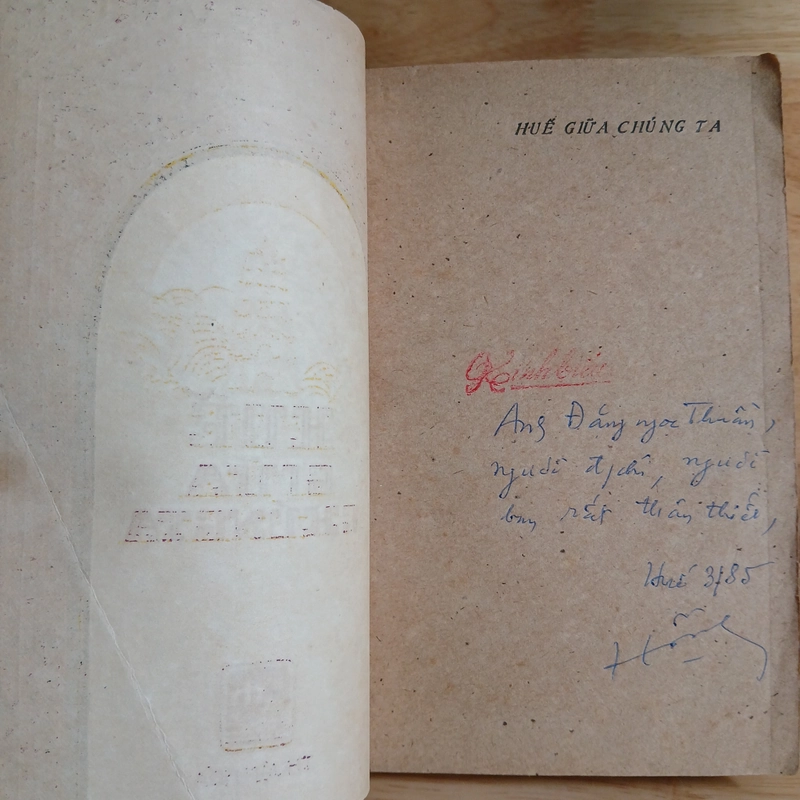 HUẾ GIỮA CHÚNG TA
Kính biếu
Anh Đặng ngọc Thuần,
người đ/chí, người
bạn rất thân thiết,
Huế 3/85